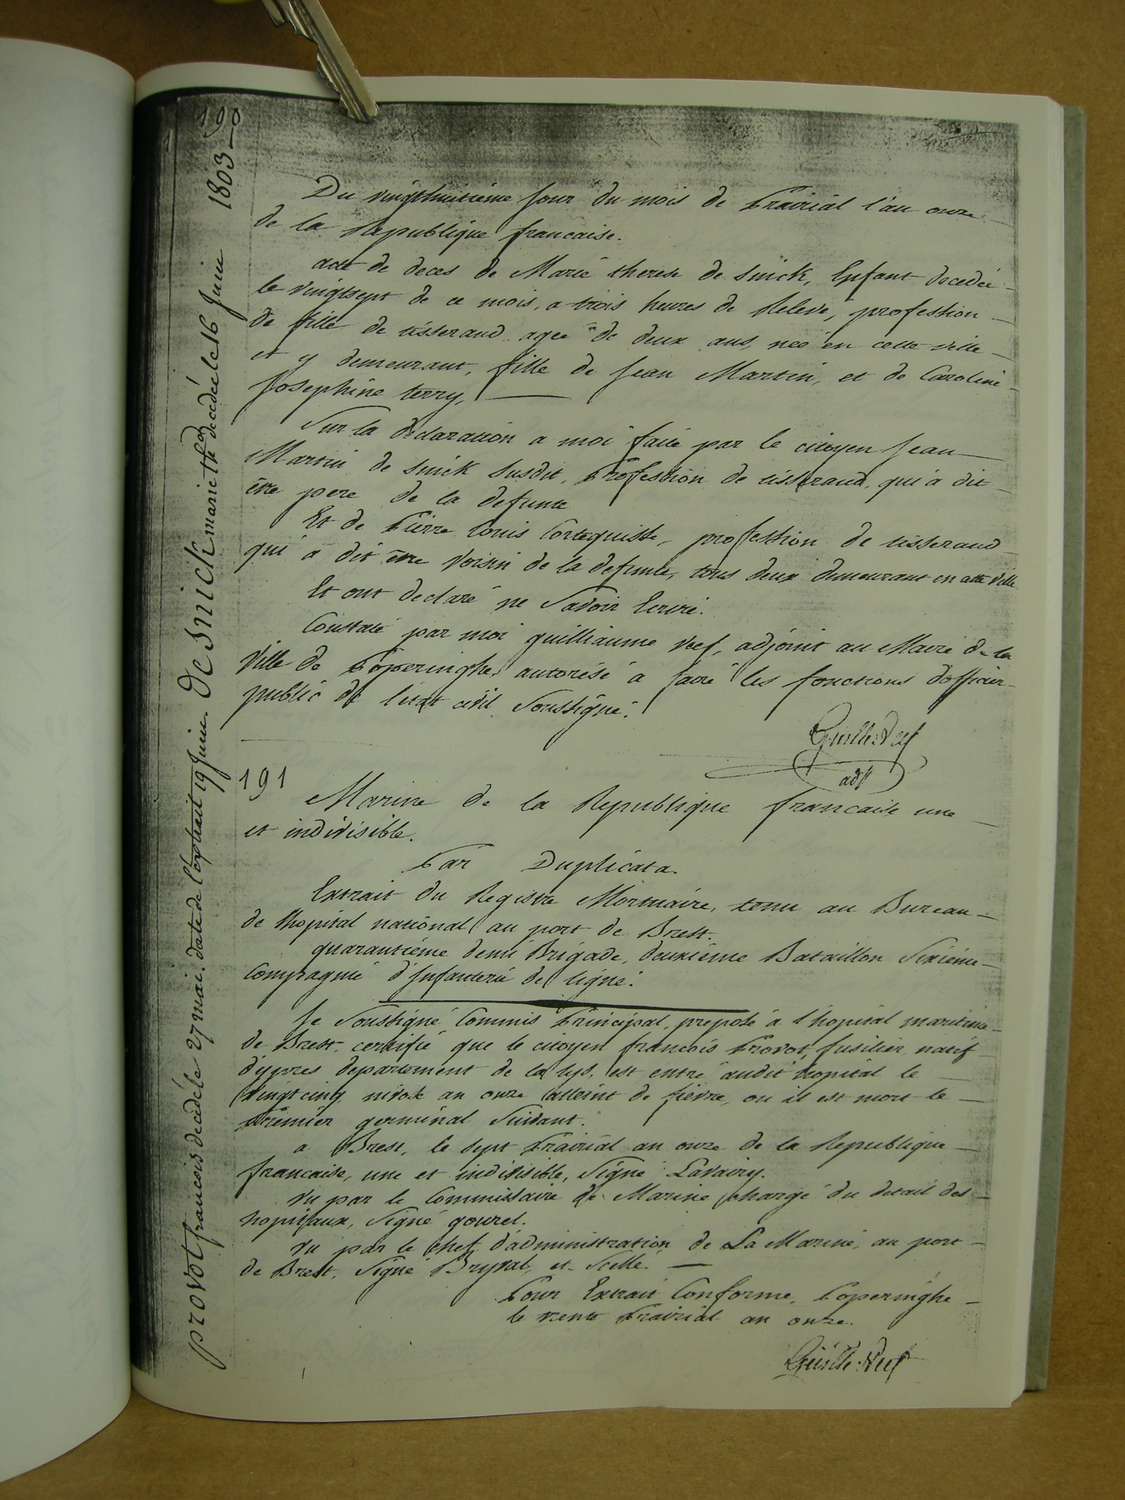 190
1803
De Snick marie th. decedée le 16 Juin
Du vingthuitiéme Jour du mois de Prairial l'an onze
de la Republique francaise.
acte de deces de Marie therese de Snick, Enfant decedée
le vingtsept de ce mois, a trois heures de Relevé, profession
de fille de tisserand agée de deux ans, née en cette ville
et y demeurant, fille de Jean Martin, et de Caroline
Josephine terry,
Sur la declaration a moi faite par le citoyen Jean
Martin de Snick Susdit, Profession de tisserand, qui a dit
être pere de la defunte
Et de Pierre Louis Corteguisse, profession de tisserand
qui a dit être Voisin de la defunte, tous deux demeurant en cette ville
Et ont declaré ne Savoir Ecrire.
Constaté par moi guilliaume Neef, adjoint au Maire de la
Ville de Poperinghe, autorisé a faire les fonctions d'officier
public de l'etat civil Soussigné.
Guille Neef
adjt
provot francois decedé le 27 mai. date de l'extrait 19 Juin
191
Marine de la Republique francaise une
et indivisible.
Par Duplicata.
Extrait du Registre Mortuaire, tenu au Bureau
de l'hopital national au port de Brest.
quarantiéme demi Brigade, deuxiéme Bataillon Sixiéme
Compagnie d'Infanterie de ligne.
Je Soussigné Commis Principal, preposé a l'hopital maritime
de Brest, certifie que le citoyen francois Provot, fusilier, natif
d'ypres departement de la lys, est entré audit hopital le
vingt cinq nivose an onze atteint de fiévre, ou il est mort le
premier germinal Suivant.
a Brest, le sept Prairial an onze de la Republique
francaise, une et indivisible, Signé Lavairy.
Vu par le Commissaire de Marine chargé du detail des
hopitaux, Signé gourel.
Vu par le chef d'administration de La Marine, au port
de Brest, Signé et Scellé.
Pour Extrait Conforme, Poperinghe
le trente Prairial an onze.
Guille Neef